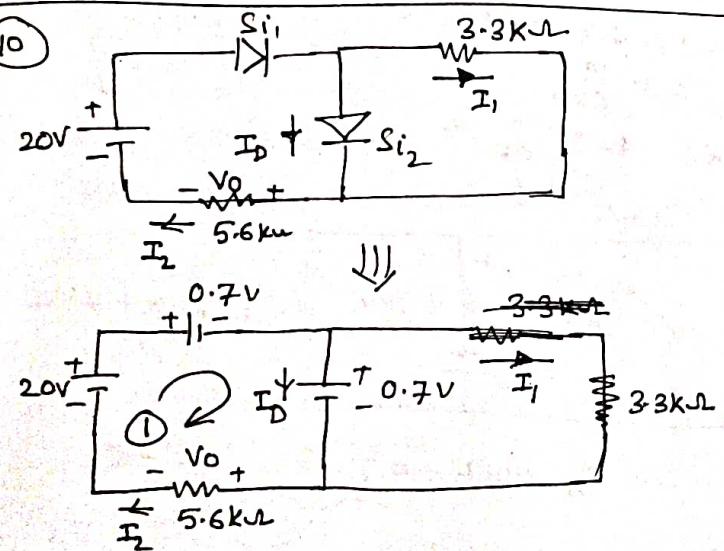 10
Si1
3.3KΩ
I1
+
20V
-
ID
Si2
- Vo +
I2
5.6kΩ
0.7V
+ -
3.3KΩ
+
20V
-
1
ID
+
-
0.7V
I1
3.3KΩ
- Vo +
I2
5.6KΩ